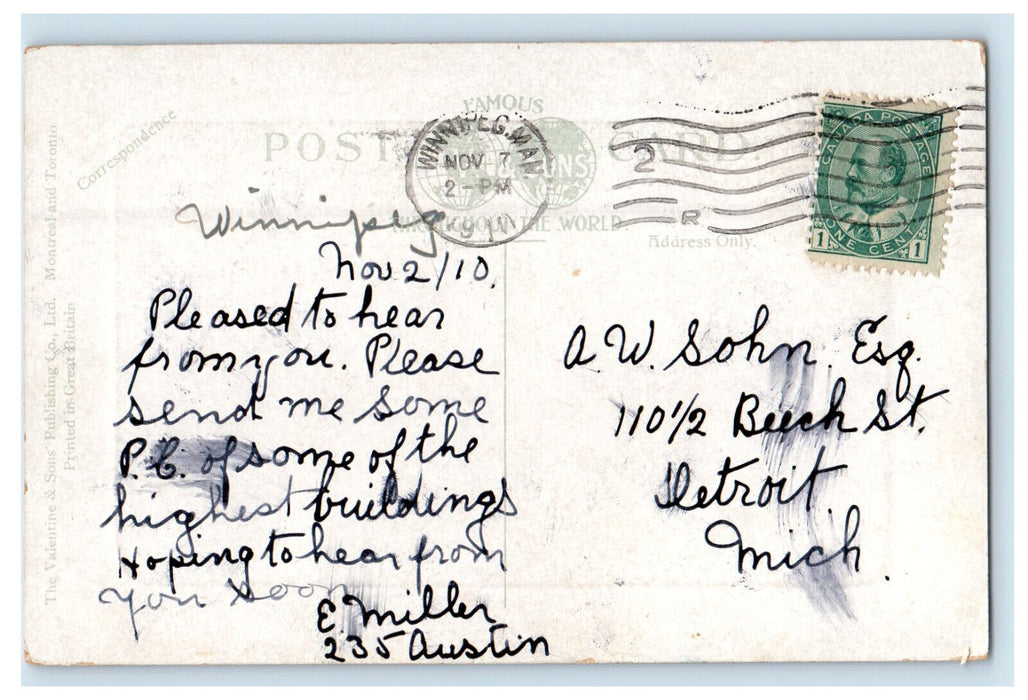 Correspondence
FAMOUS
POST CARD.
THROUGHOUT THE WORLD.
Address Only.
The Valentine & Sons' Publishing Co., Ltd. Montreal and Toronto
Printed in Great Britain
WINNIPEG. MAN
NOV 7
2 - PM
2
R
CANADA POSTAGE
1 ONE CENT 1
Winnipeg
Nov 2/10.
Pleased to hear
from you. Please
send me some
P.C. of some of the
highest buildings
Hoping to hear from
you soon
E. Miller
235 Austin
A. W. Sohn, Esq.
110 1/2 Beech St.
Detroit
Mich.